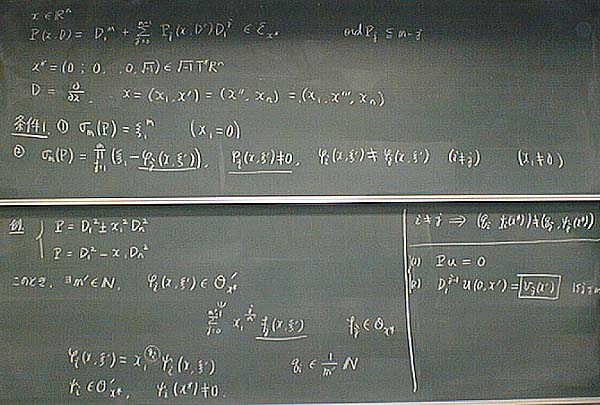 x ∈ Rⁿ
P(x, D) = D₁ᵐ + Σ_{j=0}^{m-1} P_j(x, D') D₁ʲ ∈ ℰ_{x*}    ord P_j ≤ m-j
x* = (0 ; 0, ..., 0, √-1) ∈ √-1 T*Rⁿ
D = ∂/∂x,  x = (x₁, x') = (x'', x_n) = (x₁, x''', x_n)
条件1. ① σ_m(P) = ξ₁ᵐ    (x₁=0)
② σ_m(P) = Π_{j=1}^{m} (ξ₁ - φ_j(x, ξ')),  φ_j(x, ξ') ≠ 0,  φ_i(x, ξ') ≠ φ_j(x, ξ')  (i≠j)    (x₁≠0)
例. { P = D₁² ± x₁² D_n²
P = D₁² - x₁ D_n²
このとき, ∃m' ∈ N,  φ_j(x, ξ') ∈ O'_{x*}
x₁ f_j(x, ξ')    f_j ∈ O_{x*}
φ_i(x, ξ') = x₁^{q_i} ψ_i(x, ξ')    q_i ∈ 1/m' N
ψ_i ∈ O'_{x*},  ψ_i(x*) ≠ 0.
i ≠ j ⇒ (q_i, ψ_i(x*)) ≠ (q_j, ψ_j(x*))
(1) Pu = 0
(2) D₁^{j-1} u(0, x') = v_j(x')  1≤j≤m